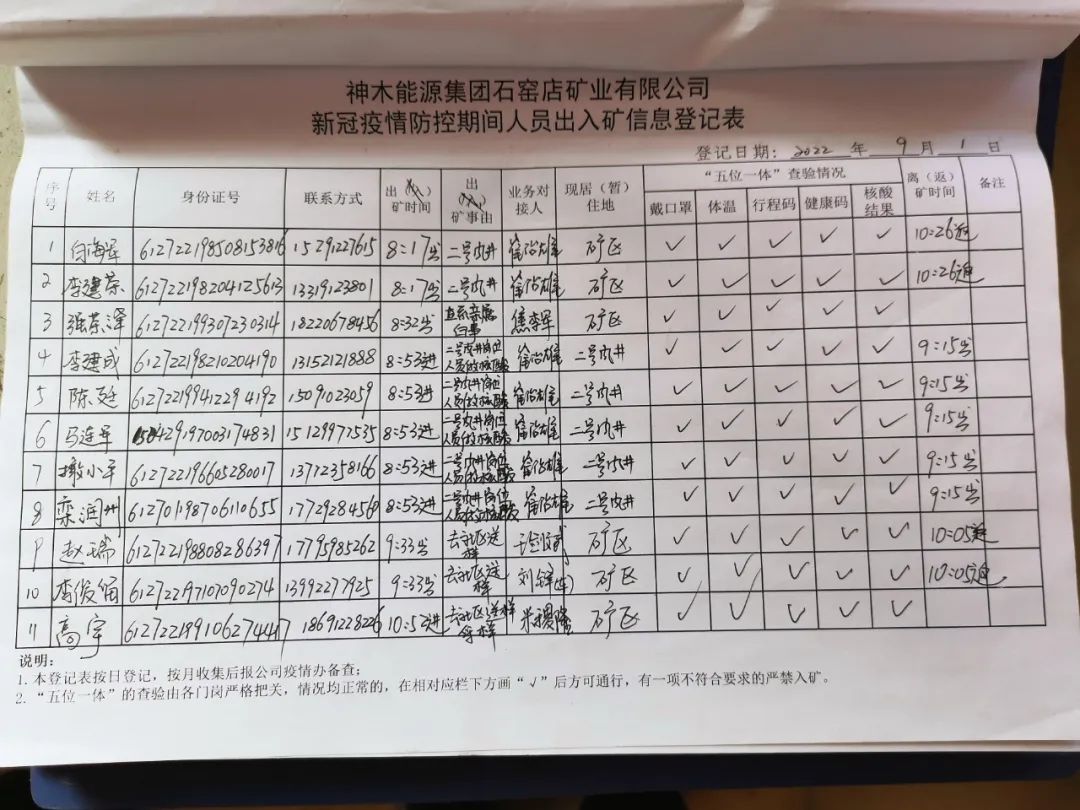 神木能源集团石窑店矿业有限公司
新冠疫情防控期间人员出入矿信息登记表
登记日期：2022 年 9 月 1 日
序号 姓名 身份证号 联系方式 出（入）矿时间 出（入）矿事由 业务对接人 现居（暂）住地 “五位一体”查验情况 离（返）矿时间 备注
戴口罩 体温 行程码 健康码 核酸结果
1 白海军 612722198508153816 15291227615 8:17出 二号风井 矿区 ✓ ✓ ✓ ✓ ✓ 10:26返
2 李建荣 612722198204125613 13319123801 8:17出 二号风井 矿区 ✓ ✓ ✓ ✓ ✓ 10:26返
3 强荣泽 612722199307230314 18220678456 8:32出 直系亲属白事 焦李军 矿区 ✓ ✓ ✓ ✓ ✓
4 李建成 612722198210204190 13152121888 8:53进 二号风井岗位人员做核酸 二号风井 ✓ ✓ ✓ ✓ ✓ 9:15出
5 陈廷 612722199412294192 15091023059 8:53进 二号风井岗位人员做核酸 二号风井 ✓ ✓ ✓ ✓ ✓ 9:15出
6 马连军 429197003174831 15129977535 8:53进 二号风井岗位人员做核酸 二号风井 ✓ ✓ ✓ ✓ ✓ 9:15出
7 小平 612722196605280017 13712358166 8:53进 二号风井岗位人员做核酸 二号风井 ✓ ✓ ✓ ✓ ✓ 9:15出
8 栾润州 612701198706110655 17729284560 8:53进 二号风井岗位人员做核酸 二号风井 ✓ ✓ ✓ ✓ ✓ 9:15出
9 赵瑞 612722198808286397 17795985262 9:33出 去社区送样 矿区 ✓ ✓ ✓ ✓ ✓ 10:05返
10 李俊 612722197107090274 13992277925 9:33出 去社区送样 刘 矿区 ✓ ✓ ✓ ✓ ✓ 10:05返
11 高宇 612722199106274417 18691228226 10:52进 去社区送样 矿区 ✓ ✓ ✓ ✓ ✓
说明：
1. 本登记表按日登记，按月收集后报公司疫情办备查；
2. “五位一体”的查验由各门岗严格把关，情况均正常的，在相对应栏下方画“√”后方可通行，有一项不符合要求的严禁入矿。